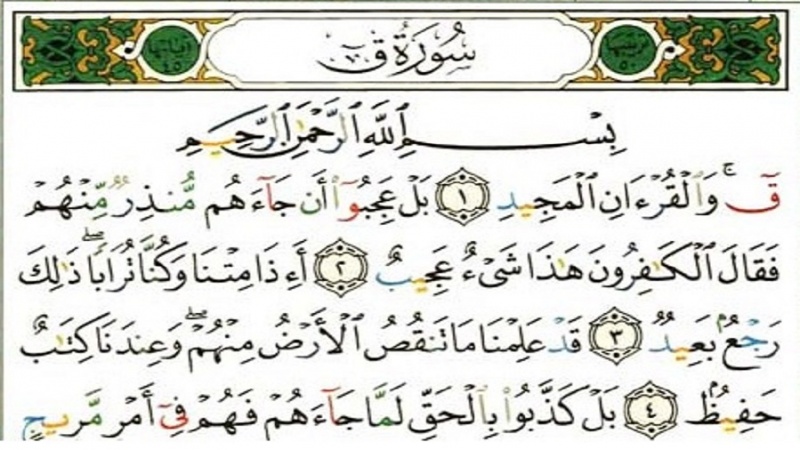 سُورَةُ ق
ترتيبها ٥٠
آياتها ٤٥
بِسْمِ ٱللَّهِ ٱلرَّحْمَٰنِ ٱلرَّحِيمِ
قٓ ۚ وَٱلْقُرْءَانِ ٱلْمَجِيدِ ١ بَلْ عَجِبُوٓا۟ أَن جَآءَهُم مُّنذِرٌ مِّنْهُمْ
فَقَالَ ٱلْكَٰفِرُونَ هَٰذَا شَىْءٌ عَجِيبٌ ٢ أَءِذَا مِتْنَا وَكُنَّا تُرَابًا ۖ ذَٰلِكَ
رَجْعٌۢ بَعِيدٌ ٣ قَدْ عَلِمْنَا مَا تَنقُصُ ٱلْأَرْضُ مِنْهُمْ ۖ وَعِندَنَا كِتَٰبٌ
حَفِيظٌۢ ٤ بَلْ كَذَّبُوا۟ بِٱلْحَقِّ لَمَّا جَآءَهُمْ فَهُمْ فِىٓ أَمْرٍ مَّرِيجٍ